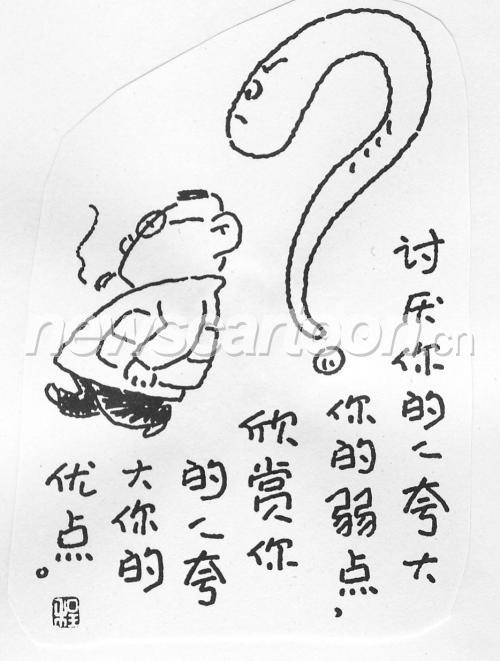 讨厌你的人夸大
你的弱点，
欣赏你
的人夸
大你的
优点。
程
newscartoon.cn